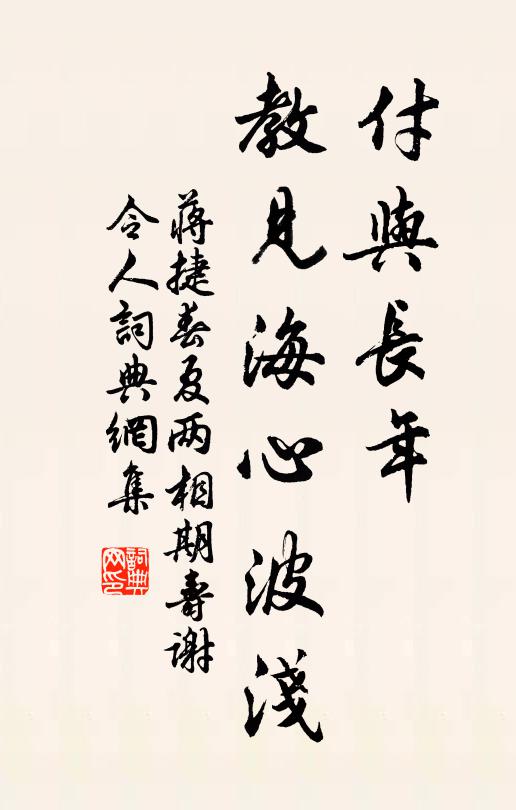 付與長年
教見海心波淺
蔣捷春夏两相期壽謝
令人詞典網集
詞典
网印